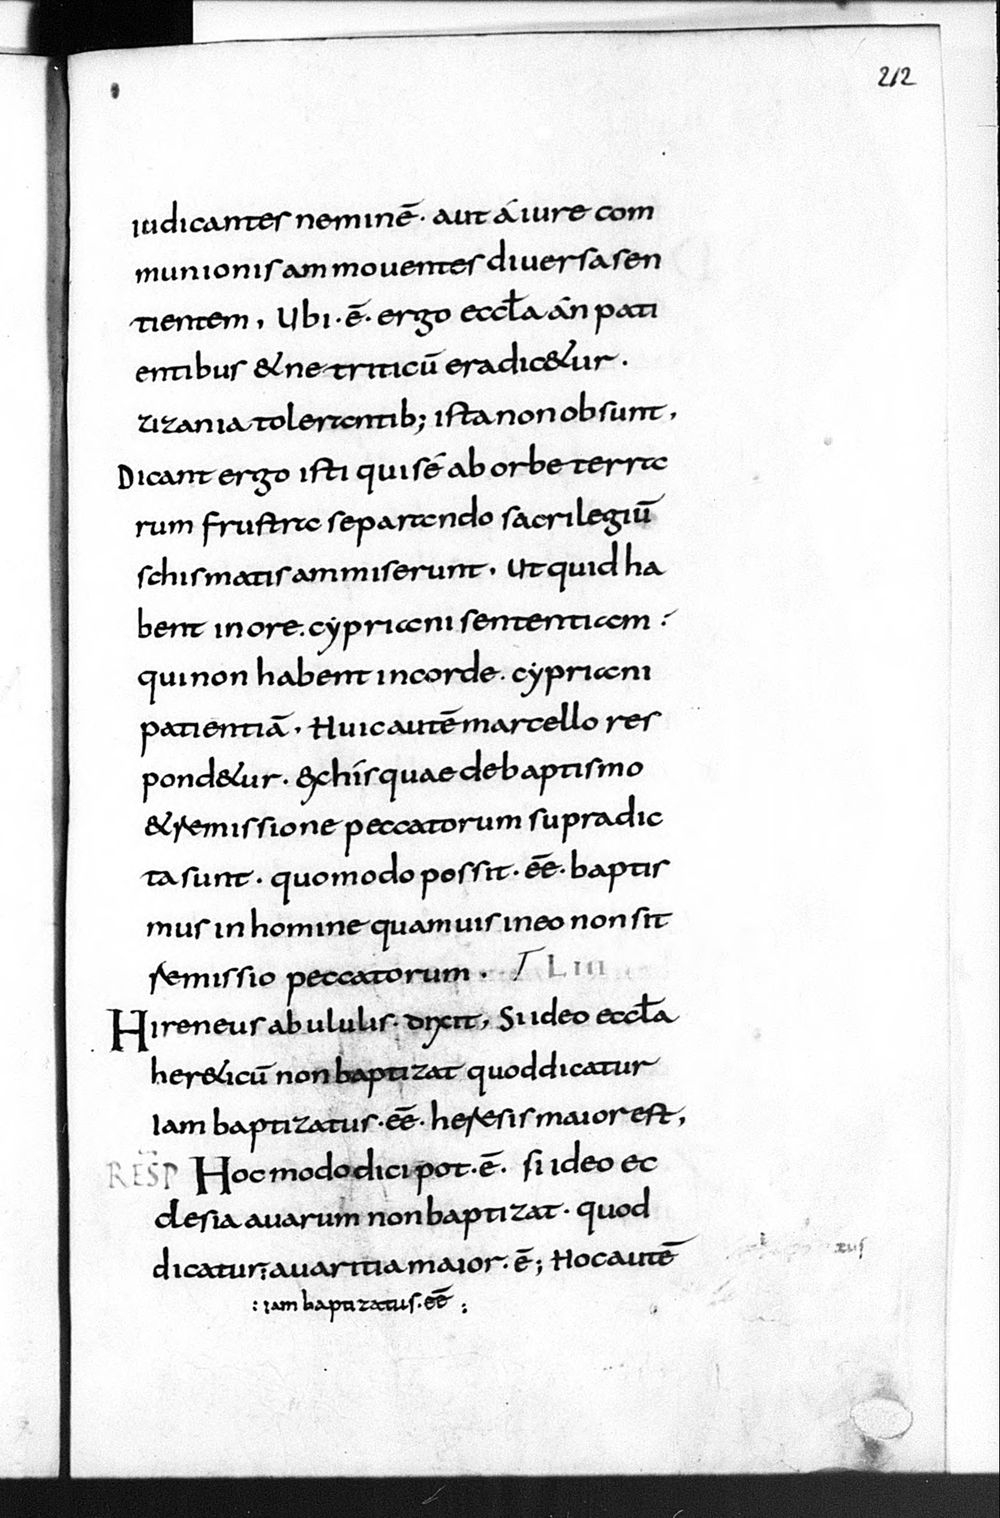 212
iudicantes neminē· aut á iure com
munionis ammouentes diuersa sen
tientem, Ubi·ē· ergo eccƚa án pati
entibus & ne triticū eradic&ur·
zizania tolerantib; ista non obsunt,
Dicant ergo isti qui sé ab orbe terra
rum frustra separando sacrilegiū
schismatis ammiserunt· Ut quid ha
bent in ore·cẏpriani sententiam :
qui non habent in corde· cẏpriani
patientiā· Huic autē marcello res
pond&ur· & ex hís quae de baptismo
& remissione peccatorum supradic
ta sunt· quomodo possit·eē·baptis
mus in homine quamuis in eo non sit
remissio peccatorum· T LIII
Hireneus ab ululis· dixit, Si ideo eccƚa
her&icū non baptizat quod dicatur
Iam baptizatus·eē·heresis maior est,
RESP Hoc modo dici pot·ē· si ideo ec
clesia auarum non baptizat· quod
dicatur: auaritia maior·ē; Hoc autē
: iam baptizatus·eē :